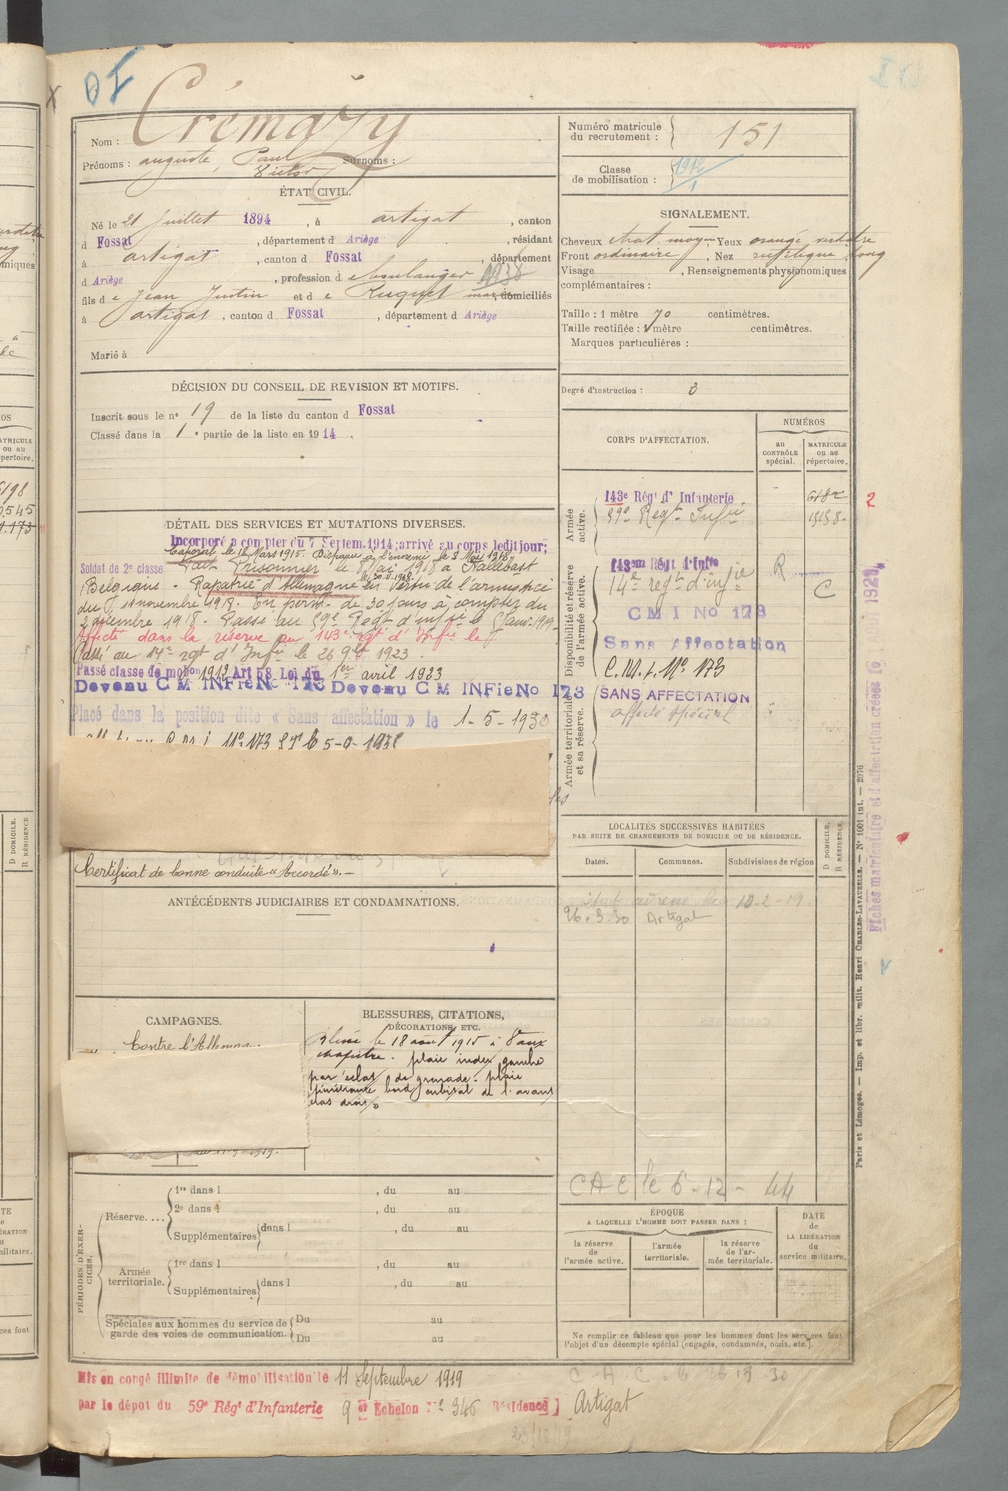 Nom : Crémazy
Prénoms : auguste Paul Surnoms :
Victor
ÉTAT CIVIL.
Né le 21 juillet 1894, à artigat, canton
d Fossat, département d Ariège, résidant
à artigat, canton d Fossat, département
d Ariège, profession d e boulanger
fils d e Jean Justin et d e Ruquet domiciliés
à artigat, canton d Fossat, département d Ariège
Marié à
DÉCISION DU CONSEIL DE REVISION ET MOTIFS.
Inscrit sous le n° 19 de la liste du canton d Fossat
Classé dans la 1e partie de la liste en 1914.
DÉTAIL DES SERVICES ET MUTATIONS DIVERSES.
Incorporé à compter du 7 Septem. 1914; arrivé au corps ledit jour;
Caporal le 16 Mars 1915. Disparu à l'ennemi le 8 Mai 1918.
Soldat de 2e classe
Fait Prisonnier le 8 Mai 1918 à Hallebast
Belgique. Rapatrié d'Allemagne en vertu de l'armistice
du 11 novembre 1918. En perm. de 30 jours à compter du
2 décembre 1918. Passé au 59e Regt d'infie le 5 janv. 1919.
Affecté dans la réserve au 143e rgt d'Infie le
Passé au 14e rgt d'Infie le 26 9bre 1923.
Passé classe de mobon 1912 Art 58 Loi du 1er avril 1923
Devenu C M INFieNo 173 Devenu C M INFieNo 173
Placé dans la position dite « Sans affectation » le 1-5-1930
Certificat de bonne conduite « Accordé ».—
ANTÉCÉDENTS JUDICIAIRES ET CONDAMNATIONS.
CAMPAGNES.
Contre l'Allemag.
BLESSURES, CITATIONS,
DÉCORATIONS, ETC.
Blessé le 18 aout 1915 à 8 aux
chapitre. plaie index gauche
par éclat de grenade. plaie
pénétrante bord cubital de l'avant
bras droit »
PÉRIODES D'EXERCICES.
Réserve....
1re dans l , du au
2e dans l , du au
Supplémentaires dans l , du au
Armée territoriale.
1re dans l , du au
Supplémentaires dans l , du au
Spéciales aux hommes du service de garde des voies de communication.
Du au
Du au
Mis en congé illimité de démobilisation le 11 Septembre 1919
par le dépot du 59e Rég' d'Infanterie 9 er Echelon N° 346 Résidence] Artigat
Numéro matricule du recrutement : 151
Classe de mobilisation : 1912
SIGNALEMENT.
Cheveux chat. moyen Yeux orangé verdâtre
Front ordinaire, Nez rectiligne long
Visage , Renseignements physionomiques
complémentaires :
Taille : 1 mètre 70 centimètres.
Taille rectifiée : 1 mètre centimètres.
Marques particulières :
Degré d'instruction : 3
CORPS D'AFFECTATION.
NUMÉROS
au CONTRÔLE spécial.
MATRICULE ou au répertoire.
Armée active.
143e Rég' d' Infanterie 6182
59e Regt Infie
Disponibilité et réserve de l'armée active.
143em Régt d'Infie
14e regt d'infie R C
C M I No 173
Sans Affectation
C.M.I. N° 173
Armée territoriale et sa réserve.
SANS AFFECTATION
affecté spécial
LOCALITÉS SUCCESSIVES HABITÉES
PAR SUITE DE CHANGEMENTS DE DOMICILE OU DE RÉSIDENCE.
Dates. Communes. Subdivisions de région
D DOMICILE. R RÉSIDENCE
26.3.30 Artigat
C A C le 6-12-44
ÉPOQUE
A LAQUELLE L'HOMME DOIT PASSER DANS :
la réserve de l'armée active.
l'armée territoriale.
la réserve de l'armée territoriale.
DATE de LA LIBÉRATION du service militaire.
Ne remplir ce tableau que pour les hommes dont les services font
l'objet d'un décompte spécial (engagés, condamnés, omis, etc.).
Paris et Limoges. — Imp. et libr. milit. Henri CHARLES-LAVAUZELLE. — N° 1001 int. — 2976